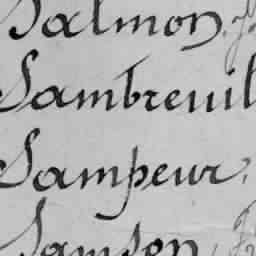 Salmon,
Sambreuil
Sampeur,
Samson,